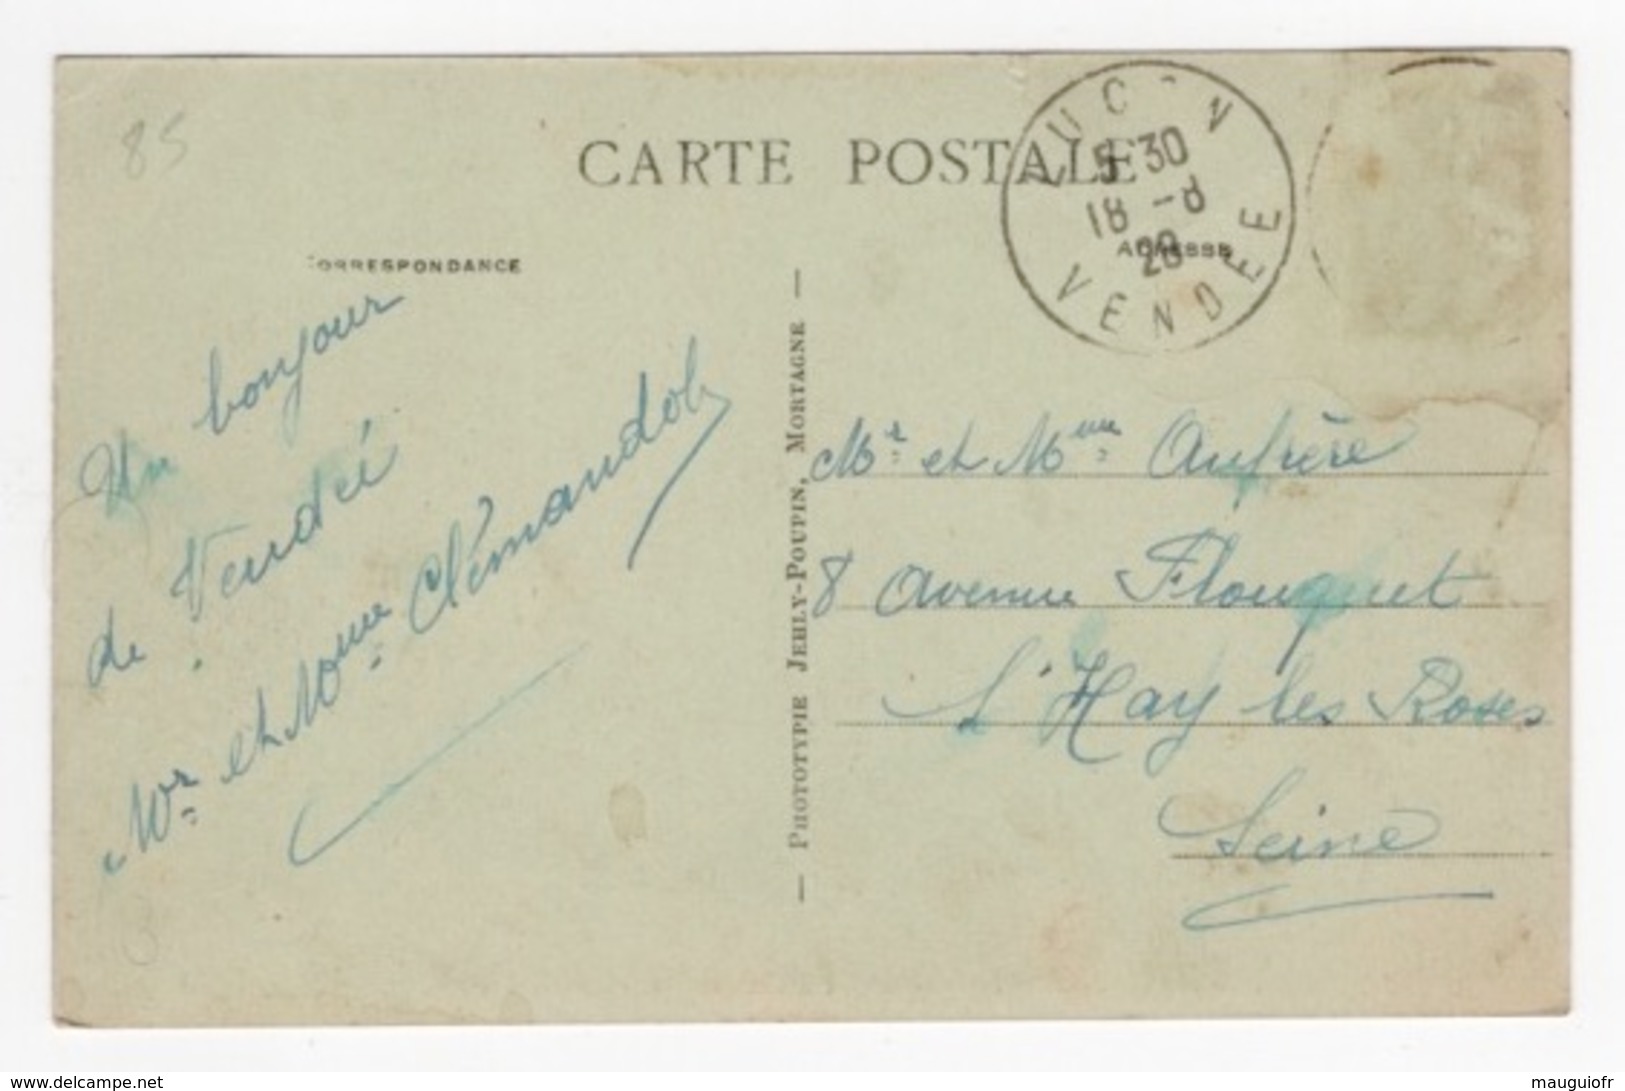 85
CARTE POSTALE
LUÇON
5 30
18 - 8
28
VENDEE
CORRESPONDANCE
ADRESSE
Un bonjour
de Vendée
Mr et Mme Clémandot
— PHOTOTYPIE JEHLY-POUPIN, MORTAGNE —
Mr et Mme Aufrère
8 avenue Flouquet
L'Hay les Roses
Seine
www.delcampe.net
mauguiofr